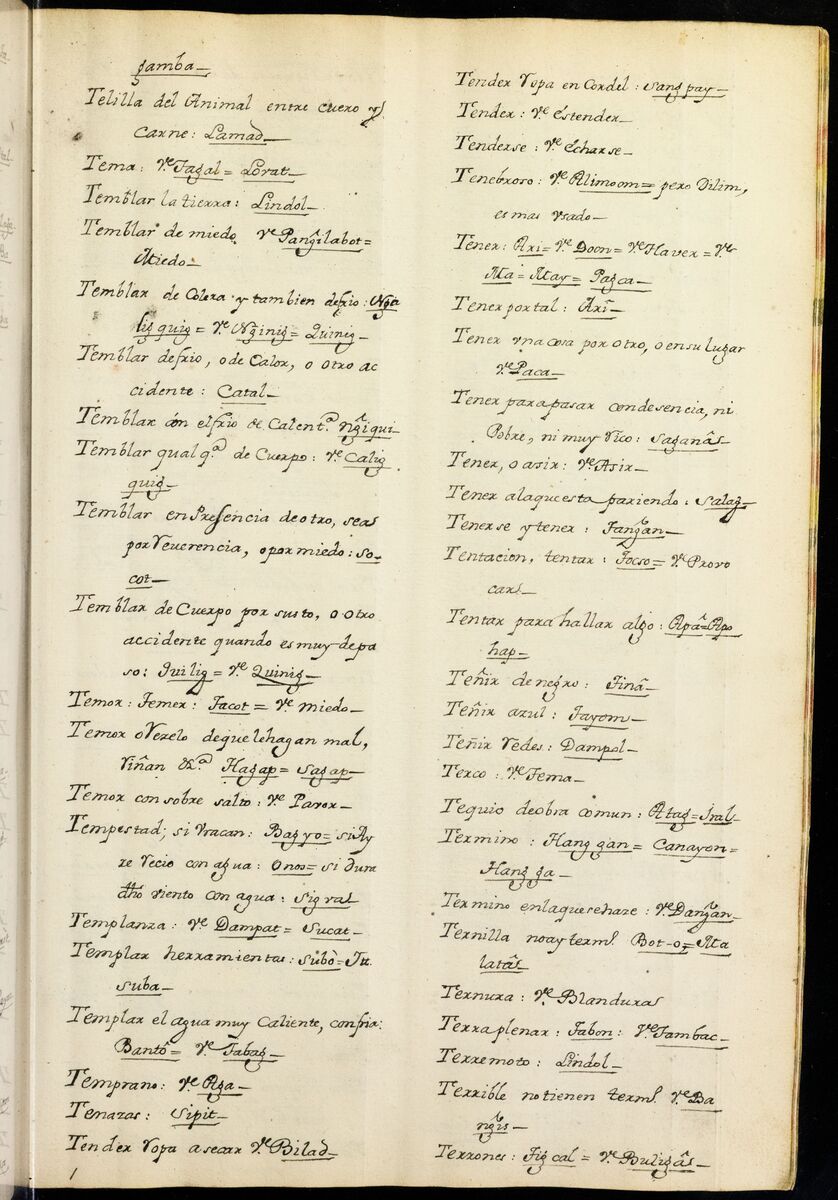 çamba_
Telilla del Animal entre cuero y
carne: Lamad_
Tema: Ve Tagal= Lorat_
Temblar la tierra: Lindol_
Temblar de miedo. Ve Pangilabot=
Miedo_
Temblar de Colera y tambien defrio: Nga
lig quig = Ve Nginig= Quinig_
Temblar defrio, o de Calor, o otro ac
cidente: Catal_
Temblar con elfrio de Calent.ª ngiqui_
Temblar qual q.ª de Cuerpo: Ve Calig
quig_
Temblar en Presencia de otro, seas
por Veverencia, o por miedo: so_
cot_
Temblar de Cuerpo por susto, o otro
accidente quando es muy depa
so: Quilig = Ve Quinig_
Temor: Temer: Tacot = Ve miedo_
Temor o Vezelo dequelehagan mal,
Viñan &.ª Hagap= Sagap_
Temor con sobre salto: Ve Pavor_
Tempestad; si Vracan: Bagyo= si Ay
re Vecio con agua: Onos= si dura
dho viento con agua: Sigval
Templanza: Ve Dampat= Sucat_
Templar herramientas: Subò= Tu
suba_
Templar el agua muy Caliente, confria:
Bantô= Ve Tabag_
Temprano: Ve Aga_
Tenazas: Sipit_
Tender Vopa asecar Ve Bilad_
Tender Vopa en Cordel: Sangpay_
Tender: Ve Estender_
Tenderse: Ve Echarse_
Tenebroso: Ve Alimoom= pero Dilim,
es mas Vsado_
Tener: Ari= Ve Doon= Ve Haver= Ve
Ma= May= Pagca_
Tener por tal: Arî_
Tener vna cosa por otro, o en su lugar
Ve Paca_
Tener para pasar condesencia, ni
Pobre, ni muy Vico: Saganâs_
Tener, o asir: Ve Asir_
Tener alaque esta pariendo: Salag_
Tenerse y tener: Tangan_
Tentacion, tentar: Tocso= Ve Provo
car_
Tentar para hallar algo: Apâ=Apo
hap_
Teñir de negro: Tinâ_
Teñir azul: Tayom_
Teñir Vedes: Dampol_
Terco: Ve Tema_
Tequio deobra comun: Atag=Iral_
Termino: Hang gan= Canayon=
Hangga_
Termino enlaque sehaze: Ve Dangan_
Ternilla no ay term.º Bot-o= Ma
latâs_
Ternura: Ve Blanduras
Terraplenar: Tabon: Ve Tambac_
Terremoto: Lindol_
Terrible no tienen term.º Ve Ba
ngis_
Terrones: Tigcal= Ve Buligâs_